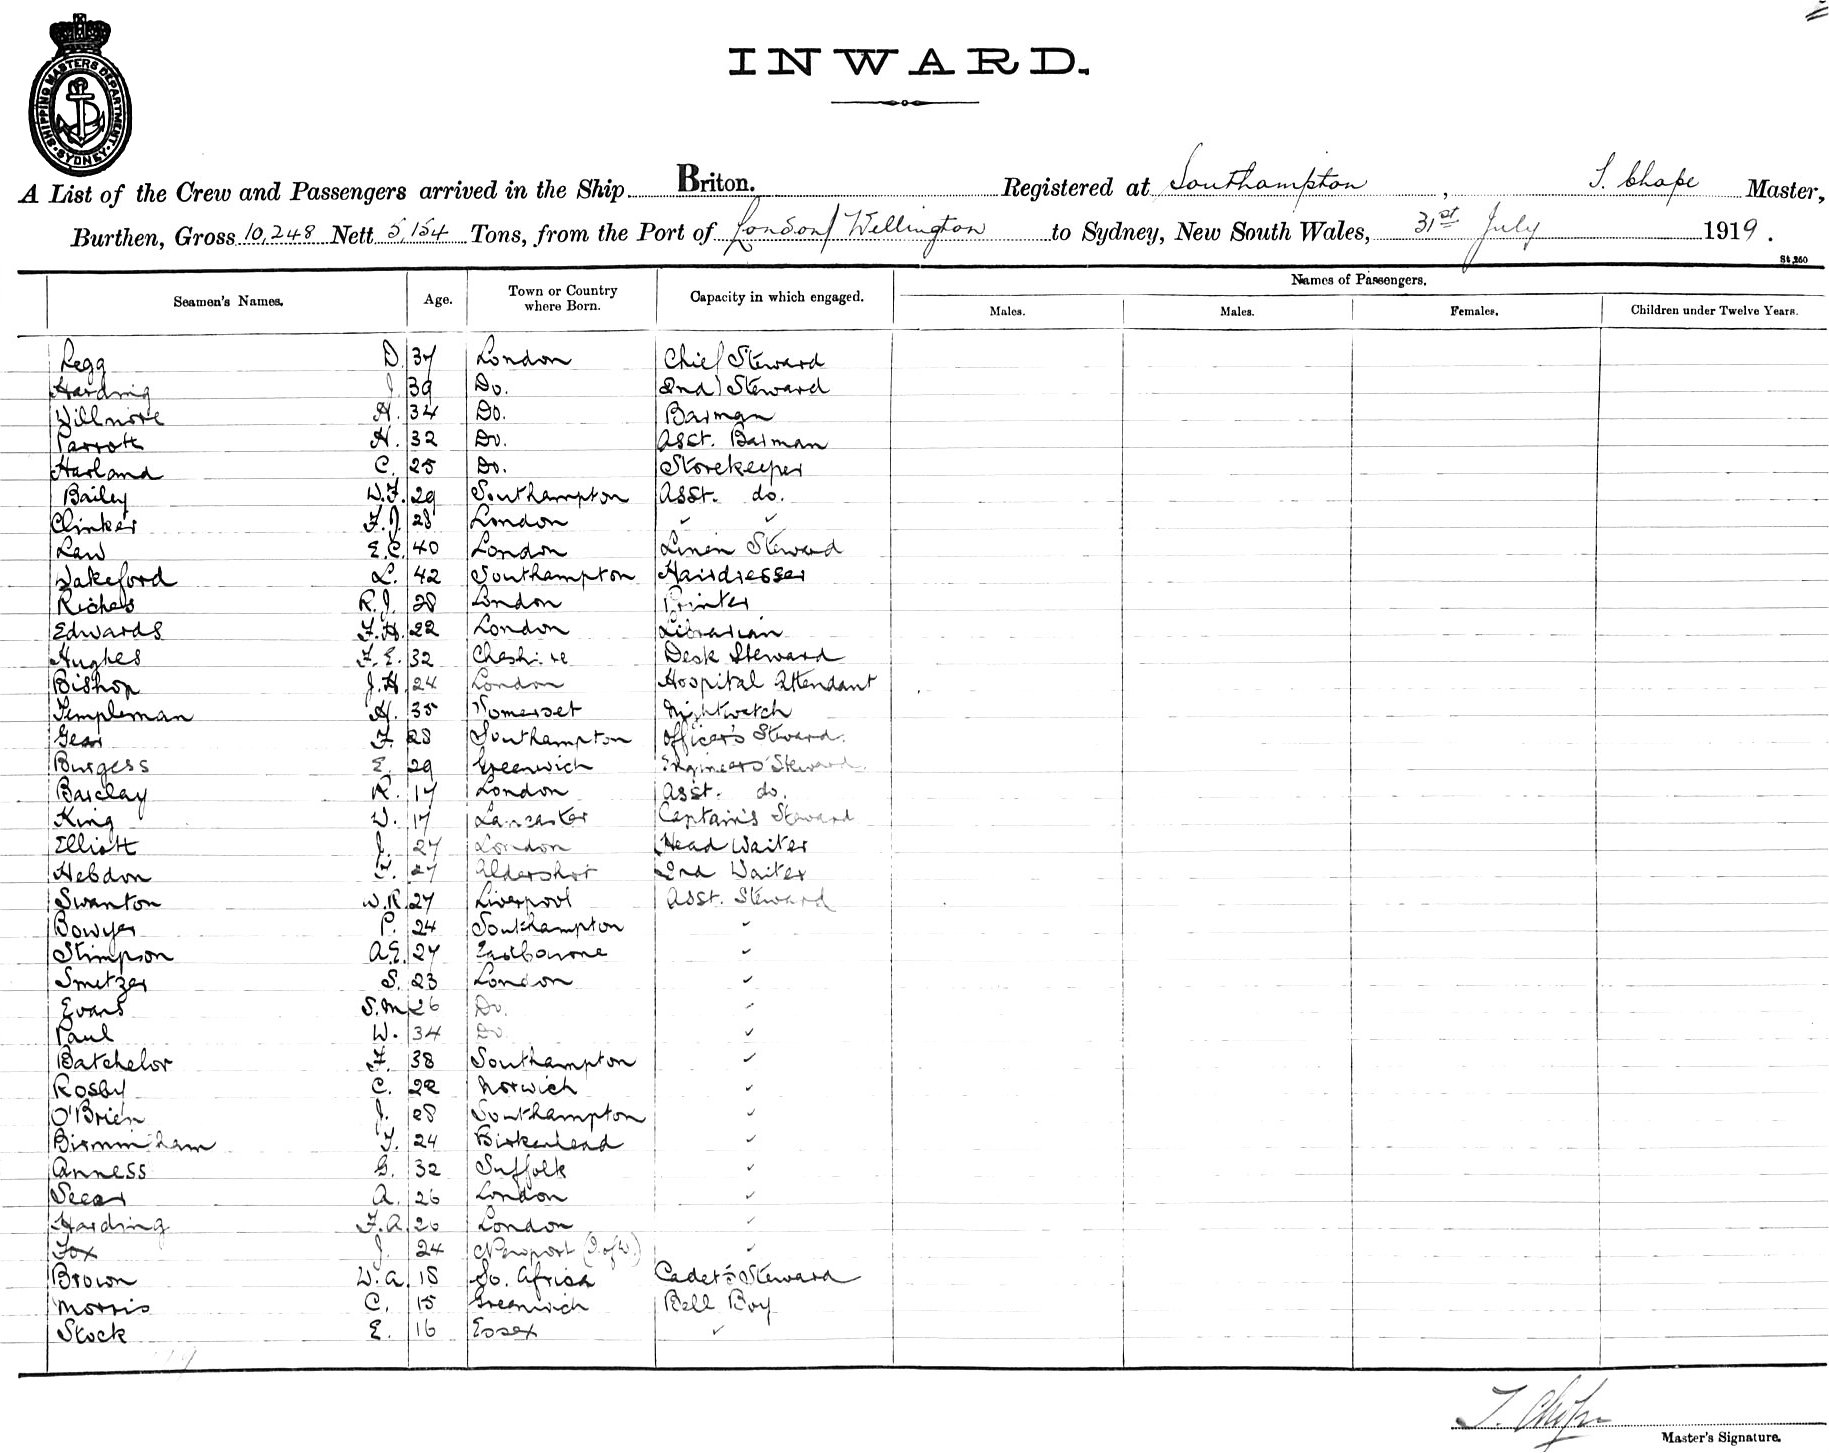 SHIPPING MASTERS DEPARTMENT. SYDNEY
INWARD.
A List of the Crew and Passengers arrived in the Ship Briton. Registered at Southampton, Master,
Burthen, Gross 10,248 Nett 5,154 Tons, from the Port of London/Wellington to Sydney, New South Wales, 31st July 1919.
St. 260
Names of Passengers.
Seamen's Names. Age. Town or Country where Born. Capacity in which engaged. Males. Males. Females. Children under Twelve Years.
Legg D. 37 London Chief Steward
Harding J. 39 Do. 2nd Steward
Willmore H. 34 Do. Barman
Parrott H. 32 Do. Asst. Barman
Harland C. 25 Do. Storekeeper
Bailey W.F. 29 Southampton Asst. do.
Clinker F.J. 28 London ✓ ✓
Law E.C. 40 London Linen Steward
Wakeford L. 42 Southampton Hairdresser
Riches R.J. 28 London Printer
Edwards F.H. 22 London Librarian
Hughes F.E. 32 Cheshire Desk Steward
Bishop J.H. 24 London Hospital Attendant
Templeman H. 35 Somerset Nightwatch
Gear F. 28 Southampton Officer's Steward.
Burgess E. 29 Greenwich Engineers' Steward.
Barclay R. 17 London Asst. do.
King W. 17 Lancaster Captain's Steward
Elliott J. 27 London Head Waiter
Hebdon F. 27 Aldershot 2nd Waiter
Swanton W.R. 27 Liverpool Asst. Steward
Bowyer P. 24 Southampton ✓
Stimpson A.E. 27 Eastbourne ✓
Smetzer S. 23 London ✓
Evans S.M. 26 Do. ✓
Paul W. 34 Do. ✓
Batchelor F. 38 Southampton ✓
Rosby C. 22 Norwich ✓
O'Brien J. 28 Southampton ✓
Birmingham F. 24 Birkenhead ✓
Anness G. 32 Suffolk ✓
Secar A. 26 London ✓
Harding F.A. 20 London ✓
Fox J. 24 Newport (I. of W.) ✓
Brown W.A. 18 So. Africa Cadet Steward
Morris C. 15 Greenwich Bell Boy
Stock E. 16 Essex ✓
Master's Signature.